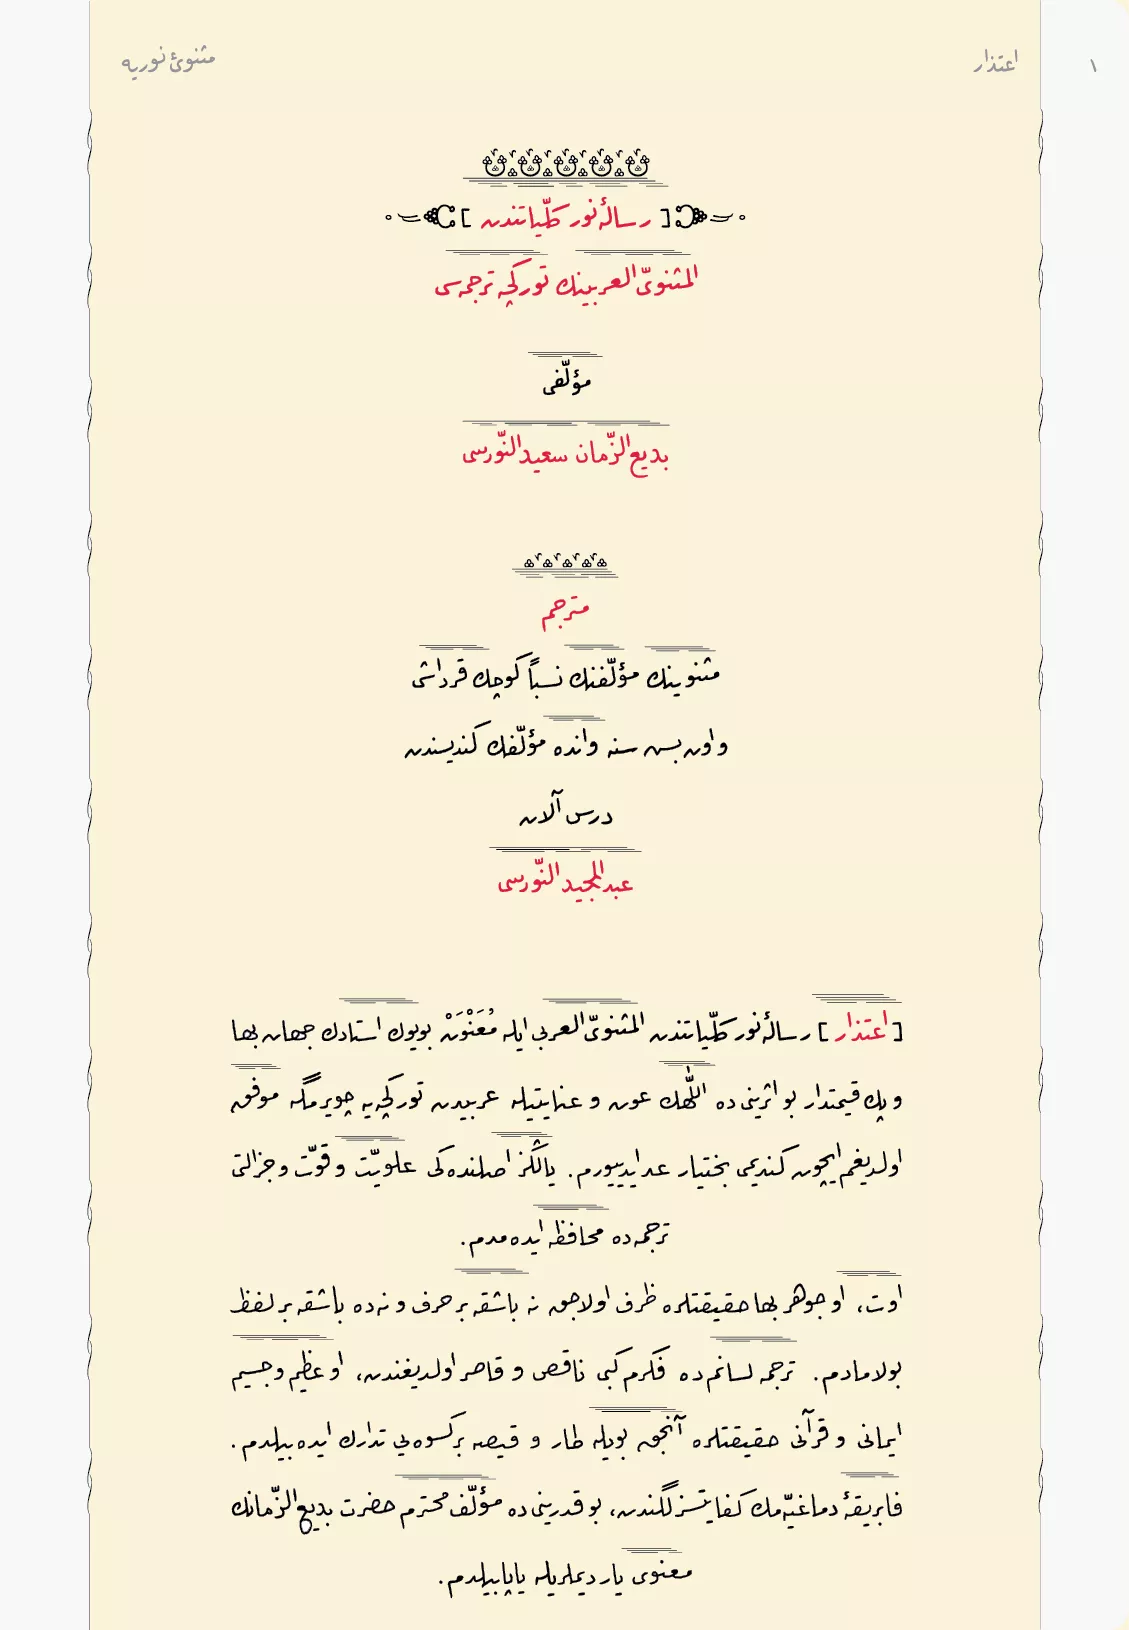 ١
اعتذار
مثنوئ نوريه
[ رسالۀ نور كلّياتندن ]
المثنوىّ العربينك توركچه ترجمه‌سى
مؤلّفى
بديع الزّمان سعيد النّورسى
مترجم
مثنوينك مؤلّفنك نسباً كوچك قرداشى
و اون بش سنه وانده مؤلّفك كنديسندن
درس آلان
عبد المجيد النّورسى
[ اعتذار ] رسالۀ نور كلّياتندن المثنوىّ العربى ايله مُعَنْوَنْ بويوك استادك جهان بها
و پك قيمتدار بو اثرينى ده اللّٰهك عون و عنايتيله عربيدن توركجه‌يه چويرمگه موفق
اولديغم ايچون كنديمى بختيار عد ايدييورم. ياڭكز اصلنده‌كى علويّت و قوّت و جزالتى
ترجمه‌ده محافظه ايده‌مدم.
اوت، او جوهر بها حقيقتلره ظرف اولاجق نه باشقه بر حرف و نه‌ده باشقه بر لفظ
بولامادم. ترجمه لسانم‌ده فكرم كبى ناقص و قاصر اولديغندن، او عظيم و جسيم
ايمانى و قرآنى حقيقتلره آنجق بويله طار و قيصه بر كسوه‌يى تدارك ايده‌بيلدم.
فابريقۀ دماغيّه‌مك كفايتسزلگندن، بو قدرينى ده مؤلّف محترم حضرت بديع الزّمانك
معنوى يارديملريله ياپابيلدم.